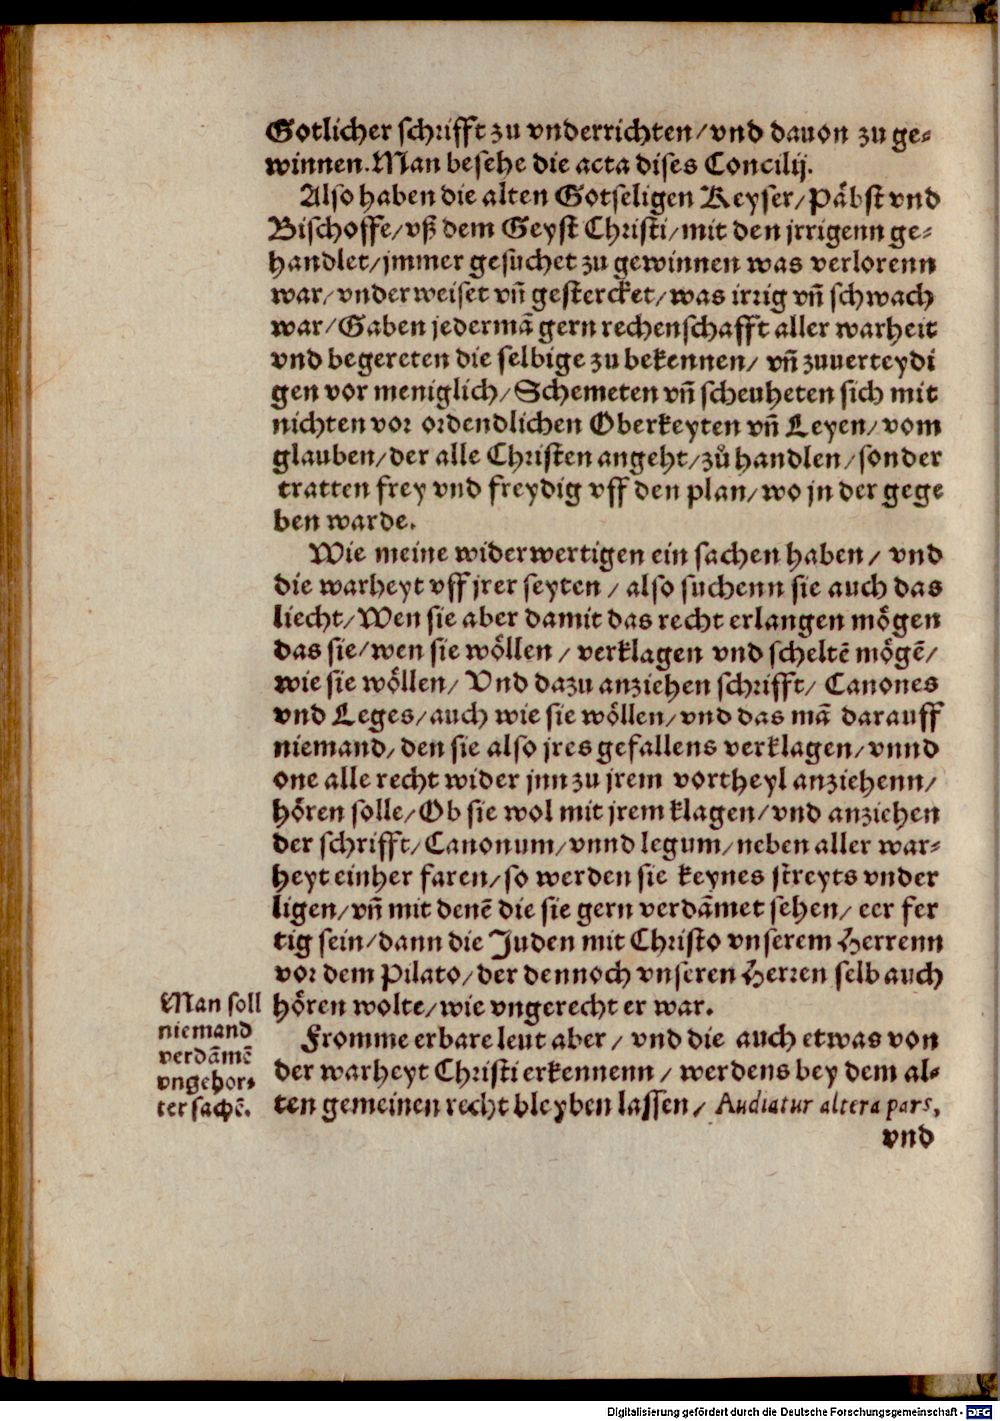 Gotlicher schrifft zu vnderrichten/vnd dauon zu ge-
winnen. Man besehe die acta dises Concilij.
Also haben die alten Gotseligen Keyser/Påbst vnd
Bischoffe/vß dem Geyst Christi/mit den jrrigenn ge-
handlet/jmmer gesuchet zu gewinnen was verlorenn
war/vnderweiset vñ gestercket/was irrig vñ schwach
war/Gaben jedermā gern rechenschafft aller warheit
vnd begereten die selbige zu bekennen/ vñ zuuerteydi
gen vor meniglich/Schemeten vñ scheuheten sich mit
nichten vor ordendlichen Oberkeyten vñ Leyen/vom
glauben/der alle Christen angeht/zů handlen/sonder
tratten frey vnd freydig vff den plan/wo jn der gege
ben warde.
Wie meine widerwertigen ein sachen haben/ vnd
die warheyt vff jrer seyten / also suchenn sie auch das
liecht/Wen sie aber damit das recht erlangen mögen
das sie/wen sie wöllen / verklagen vnd scheltē mögē/
wie sie wöllen/ Vnd dazu anziehen schrifft/ Canones
vnd Leges/auch wie sie wöllen/vnd das mā darauff
niemand/den sie also jres gefallens verklagen/vnnd
one alle recht wider jnn zu jrem vortheyl anziehenn/
hören solle/Ob sie wol mit jrem klagen/vnd anziehen
der schrifft/Canonum/vnnd legum/neben aller war-
heyt einher faren/so werden sie keynes streyts vnder
ligen/vñ mit denē die sie gern verdāmet sehen/ eer fer
tig sein/dann die Juden mit Christo vnserem Herrenn
vor dem Pilato/der dennoch vnseren Herren selb auch
hören wolte/wie vngerecht er war.
Man soll
niemand
verdāmē
vngehor-
ter sachē.
Fromme erbare leut aber / vnd die auch etwas von
der warheyt Christi erkennenn / werdens bey dem al-
ten gemeinen recht bleyben lassen / Audiatur altera pars,
vnd
Digitalisierung gefördert durch die Deutsche Forschungsgemeinschaft - DFG